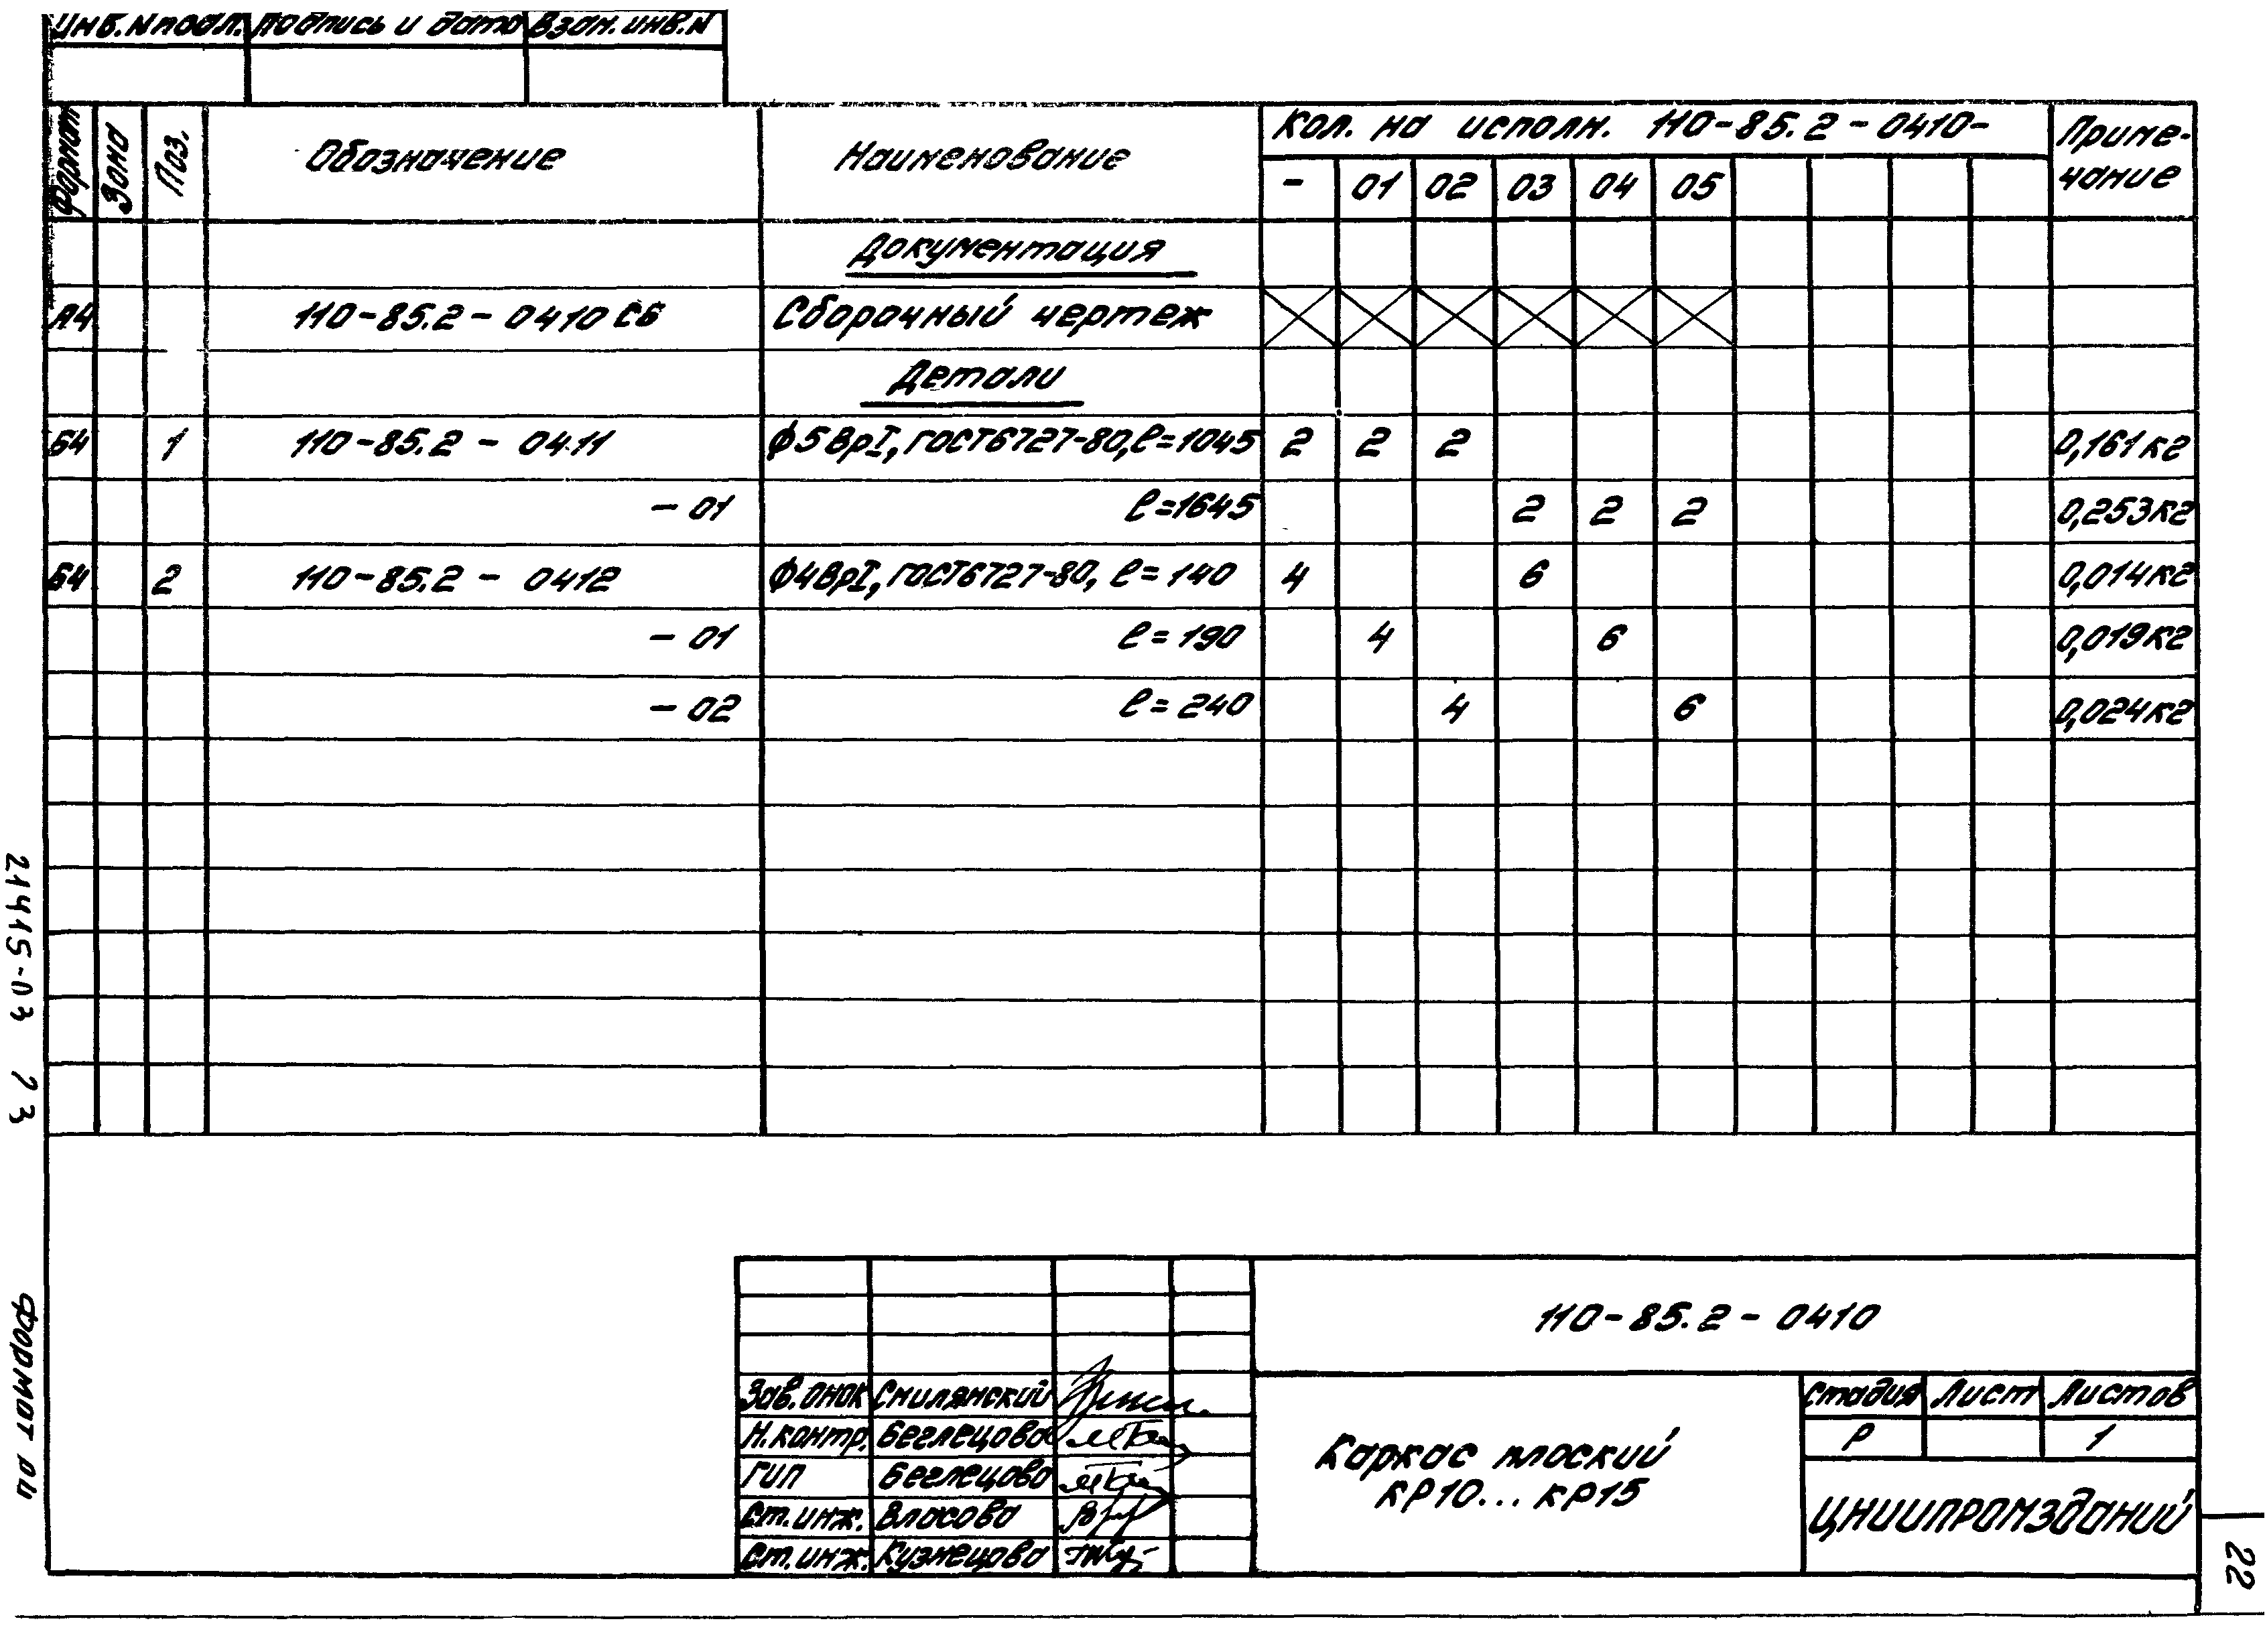 Инв.N подл. Подпись и дата Взам.инв.N
Формат Зона Поз. Обозначение Наименование Кол. на исполн. 110-85.2-0410- Приме-
чание
- 01 02 03 04 05
Документация
А4 110-85.2-0410 СБ Сборочный чертеж
Детали
Б4 1 110-85.2-0411 ф5ВрI, ГОСТ6727-80, ℓ=1045 2 2 2 0,161кг
-01 ℓ=1645 2 2 2 0,253кг
Б4 2 110-85.2-0412 ф4ВрI, ГОСТ6727-80, ℓ=140 4 6 0,014кг
-01 ℓ=190 4 6 0,019кг
-02 ℓ=240 4 6 0,024кг
21415-03 23
Формат
110-85.2-0410
Зав.ОНОК Смилянский
Н.контр. Беглецова
ГИП Беглецова
Ст.инж. Власова
Ст.инж. Кузнецова
Каркас плоский
КР10...КР15
Стадия Лист Листов
Р 1
ЦНИИПРОМЗДАНИЙ
22